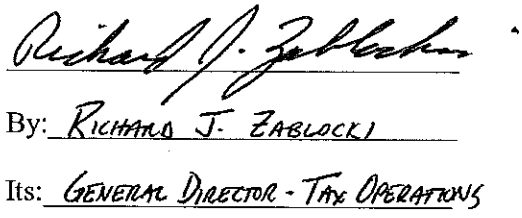 Richard J. Zablocki
By: RICHARD J. ZABLOCKI
Its: GENERAL DIRECTOR - TAX OPERATIONS